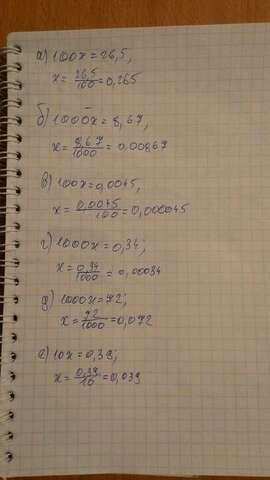 а) 100x = 26,5,
x = 26,5/100 = 0,265
б) 1000x = 8,67,
x = 8,67/1000 = 0,00867
в) 100x = 0,0045,
x = 0,0045/100 = 0,000045
г) 1000x = 0,34;
x = 0,34/1000 = 0,00034
д) 1000x = 72;
x = 72/1000 = 0,072
е) 10x = 0,39;
x = 0,39/10 = 0,039